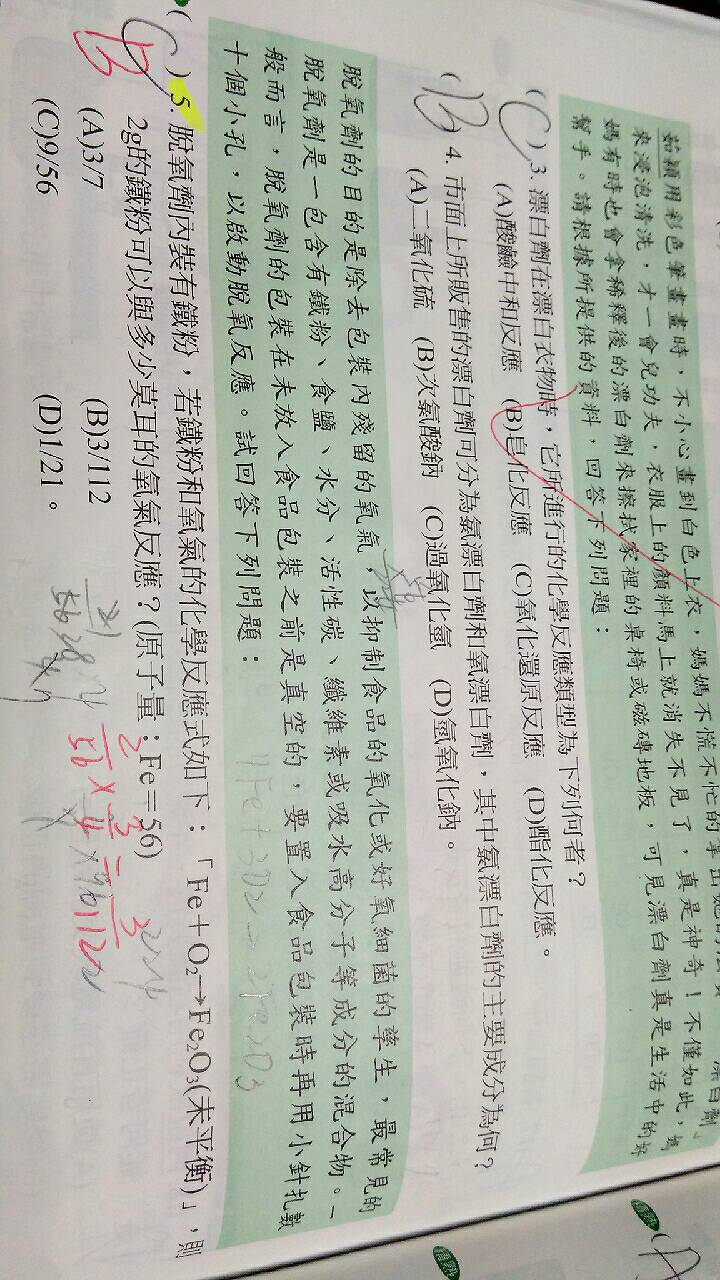 茹穎用彩色筆畫畫時，不小心畫到白色上衣，媽媽不慌不忙的拿出她的
來浸泡清洗，才一會兒功夫，衣服上的顏料馬上就消失不見了，真是神奇！不僅如此，媽
媽有時也會拿稀釋後的漂白劑來擦拭家裡的桌椅或磁磚地板，可見漂白劑真是生活中的好
幫手。請根據所提供的資料，回答下列問題：
(C)3. 漂白劑在漂白衣物時，它所進行的化學反應類型為下列何者？
(A)酸鹼中和反應 (B)皂化反應 (C)氧化還原反應 (D)酯化反應。
(B)4. 市面上所販售的漂白劑可分為氯漂白劑和氧漂白劑，其中氯漂白劑的主要成分為何？
(A)二氧化硫 (B)次氯酸鈉 (C)過氧化氫 (D)氫氧化鈉。
脫氧劑的目的是除去包裝內殘留的氧氣，以抑制食品的氧化或好氧細菌的孳生，最常見的
脫氧劑是一包含有鐵粉、食鹽、水分、活性碳、纖維素或吸水高分子等成分的混合物。一
般而言，脫氧劑的包裝在未放入食品包裝之前是真空的，要置入食品包裝時再用小針扎數
十個小孔，以啟動脫氧反應。試回答下列問題：
4Fe+3O2→2Fe2O3
(C)5. 脫氧劑內裝有鐵粉，若鐵粉和氧氣的化學反應式如下：「Fe＋O₂→Fe₂O₃(未平衡)」，則
B
2g的鐵粉可以與多少莫耳的氧氣反應？(原子量：Fe＝56)
(A)3/7 (B)3/112
(C)9/56 (D)1/21。
2/56 × 3/4 = 3/112